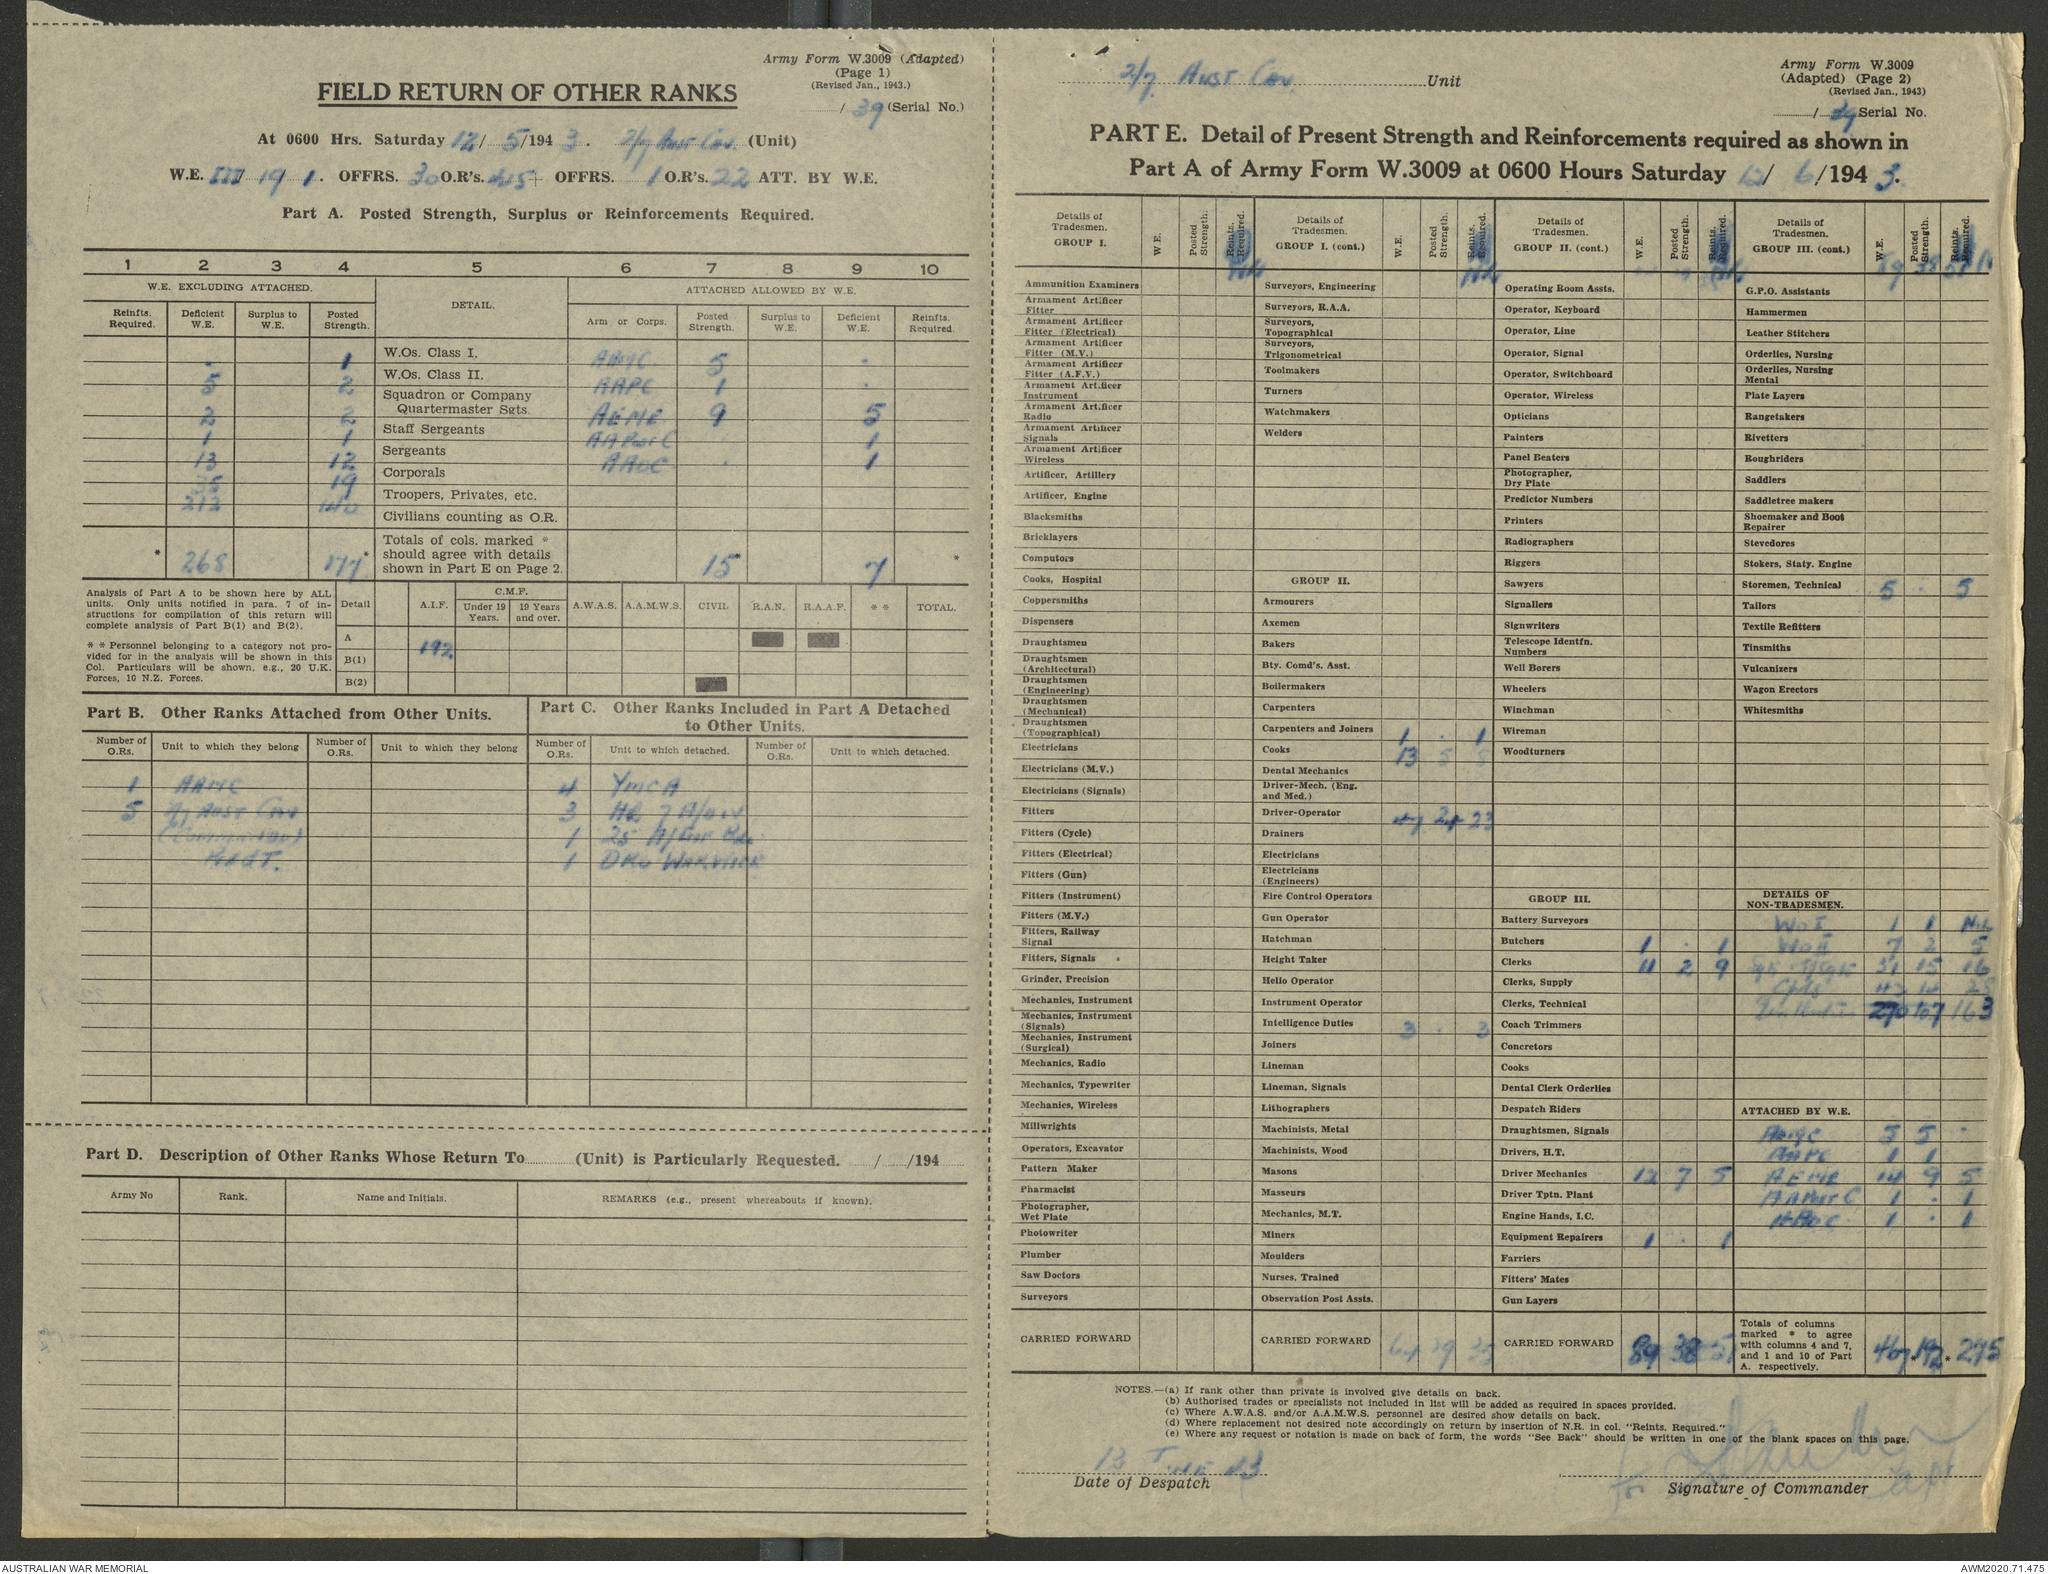 Army Form W.3009 (Adapted)
(Page 1)
(Revised Jan., 1943.)
FIELD RETURN OF OTHER RANKS
/ 39 (Serial No.)
At 0600 Hrs. Saturday 12/ 5/194 3. 2/7 Aust Cav. (Unit)
W.E. III 19 1. OFFRS. 30 O.R's. 445+ OFFRS. 1 O.R's. 22 ATT. BY W.E.
Part A. Posted Strength, Surplus or Reinforcements Required.
1 2 3 4 5 6 7 8 9 10
W.E. EXCLUDING ATTACHED. DETAIL. ATTACHED ALLOWED BY W.E.
Reinfts. Required. Deficient W.E. Surplus to W.E. Posted Strength. Arm or Corps. Posted Strength. Surplus to W.E. Deficient W.E. Reinfts. Required.
. 1 W.Os. Class I. AAMC 5 .
5 2 W.Os. Class II. AAPC 1 .
2 2 Squadron or Company Quartermaster Sgts. AEME 9 5
1 1 Staff Sergeants AAPostC . 1
13 12 Sergeants AAOC . 1
35 19 Corporals
212 140 Troopers, Privates, etc.
Civilians counting as O.R.
* 268 177 * Totals of cols. marked * should agree with details shown in Part E on Page 2. 15 * 7 *
Analysis of Part A to be shown here by ALL units. Only units notified in para. 7 of instructions for compilation of this return will complete analysis of Part B(1) and B(2).
* * Personnel belonging to a category not provided for in the analysis will be shown in this Col. Particulars will be shown, e.g., 20 U.K. Forces, 10 N.Z. Forces.
Detail A.I.F. C.M.F. Under 19 Years. 19 Years and over. A.W.A.S. A.A.M.W.S. CIVIL R.A.N. R.A.A.F. * * TOTAL.
A 192
B(1)
B(2)
Part B. Other Ranks Attached from Other Units.
Part C. Other Ranks Included in Part A Detached to Other Units.
Number of O.Rs. Unit to which they belong Number of O.Rs. Unit to which they belong Number of O.Rs. Unit to which detached. Number of O.Rs. Unit to which detached.
1 AAMC 4 YMCA
5 2/7 Aust Cav 3 HQ 7 A/Div
(Commando) 1 25 A/Inf Bde
Regt. 1 DRO Warwick
Part D. Description of Other Ranks Whose Return To (Unit) is Particularly Requested. / /194
Army No Rank. Name and Initials. REMARKS (e.g., present whereabouts if known).
2/7 Aust Cav. Unit
Army Form W.3009
(Adapted) (Page 2)
(Revised Jan., 1943)
/ 39 Serial No.
PART E. Detail of Present Strength and Reinforcements required as shown in
Part A of Army Form W.3009 at 0600 Hours Saturday 12/ 6/194 3.
Details of Tradesmen. GROUP I. W.E. Posted Strength. Reints. Required.
Nil
Ammunition Examiners
Armament Artificer Fitter
Armament Artificer Fitter (Electrical)
Armament Artificer Fitter (M.V.)
Armament Artificer Fitter (A.F.V.)
Armament Artificer Instrument
Armament Artificer Radio
Armament Artificer Signals
Armament Artificer Wireless
Artificer, Artillery
Artificer, Engine
Blacksmiths
Bricklayers
Computors
Cooks, Hospital
Coppersmiths
Dispensers
Draughtsmen
Draughtsmen (Architectural)
Draughtsmen (Engineering)
Draughtsmen (Mechanical)
Draughtsmen (Topographical)
Electricians
Electricians (M.V.)
Electricians (Signals)
Fitters
Fitters (Cycle)
Fitters (Electrical)
Fitters (Gun)
Fitters (Instrument)
Fitters (M.V.)
Fitters, Railway Signal
Fitters, Signals
Grinder, Precision
Mechanics, Instrument
Mechanics, Instrument (Signals)
Mechanics, Instrument (Surgical)
Mechanics, Radio
Mechanics, Typewriter
Mechanics, Wireless
Millwrights
Operators, Excavator
Pattern Maker
Pharmacist
Photographer, Wet Plate
Photowriter
Plumber
Saw Doctors
Surveyors
CARRIED FORWARD
Details of Tradesmen. GROUP I. (cont.) W.E. Posted Strength. Reints. Required.
Nil
Surveyors, Engineering
Surveyors, R.A.A.
Surveyors, Topographical
Surveyors, Trigonometrical
Toolmakers
Turners
Watchmakers
Welders
GROUP II.
Armourers
Axemen
Bakers
Bty. Comd's. Asst.
Boilermakers
Carpenters
Carpenters and Joiners 1 . 1
Cooks 13 5 8
Dental Mechanics
Driver-Mech. (Eng. and Med.)
Driver-Operator 47 24 23
Drainers
Electricians
Electricians (Engineers)
Fire Control Operators
Gun Operator
Hatchman
Height Taker
Helio Operator
Instrument Operator
Intelligence Duties 3 . 3
Joiners
Lineman
Lineman, Signals
Lithographers
Machinists, Metal
Machinists, Wood
Masons
Masseurs
Mechanics, M.T.
Miners
Moulders
Nurses, Trained
Observation Post Assts.
CARRIED FORWARD 64 29 35
Details of Tradesmen. GROUP II. (cont.) W.E. Posted Strength. Reints. Required.
Operating Room Assts.
Operator, Keyboard
Operator, Line
Operator, Signal
Operator, Switchboard
Operator, Wireless
Opticians
Painters
Panel Beaters
Photographer, Dry Plate
Predictor Numbers
Printers
Radiographers
Riggers
Sawyers
Signallers
Signwriters
Telescope Identfn. Numbers
Well Borers
Wheelers
Winchman
Wireman
Woodturners
GROUP III.
Battery Surveyors
Butchers 1 . 1
Clerks 11 2 9
Clerks, Supply
Clerks, Technical
Coach Trimmers
Concretors
Cooks
Dental Clerk Orderlies
Despatch Riders
Draughtsmen, Signals
Drivers, H.T.
Driver Mechanics 12 7 5
Driver Tptn. Plant
Engine Hands, I.C.
Equipment Repairers 1 . 1
Farriers
Fitters' Mates
Gun Layers
CARRIED FORWARD 89 38 51
Details of Tradesmen. GROUP III. (cont.) W.E. Posted Strength. Reints. Required.
89 38 51
G.P.O. Assistants
Hammermen
Leather Stitchers
Orderlies, Nursing
Orderlies, Nursing Mental
Plate Layers
Rangetakers
Rivetters
Roughriders
Saddlers
Saddletree makers
Shoemaker and Boot Repairer
Stevedores
Stokers, Staty. Engine
Storemen, Technical 5 . 5
Tailors
Textile Refitters
Tinsmiths
Vulcanizers
Wagon Erectors
Whitesmiths
DETAILS OF NON-TRADESMEN.
WO I 1 1 Nil
WO II 7 2 5
31 15 16
Cpls 42 14 28
270 107 163
ATTACHED BY W.E.
AAMC 5 5 .
AAPC 1 1
AEME 14 9 5
AAPost C 1 . 1
AAOC 1 . 1
Totals of columns marked * to agree with columns 4 and 7, and 1 and 10 of Part A. respectively. 467 * 192 * 275
NOTES.—(a) If rank other than private is involved give details on back.
(b) Authorised trades or specialists not included in list will be added as required in spaces provided.
(c) Where A.W.A.S. and/or A.A.M.W.S. personnel are desired show details on back.
(d) Where replacement not desired note accordingly on return by insertion of N.R. in col. "Reints. Required."
(e) Where any request or notation is made on back of form, the words "See Back" should be written in one of the blank spaces on this page.
13 June 43
Date of Despatch
for
Capt
Signature of Commander
AUSTRALIAN WAR MEMORIAL
AWM2020.71.475